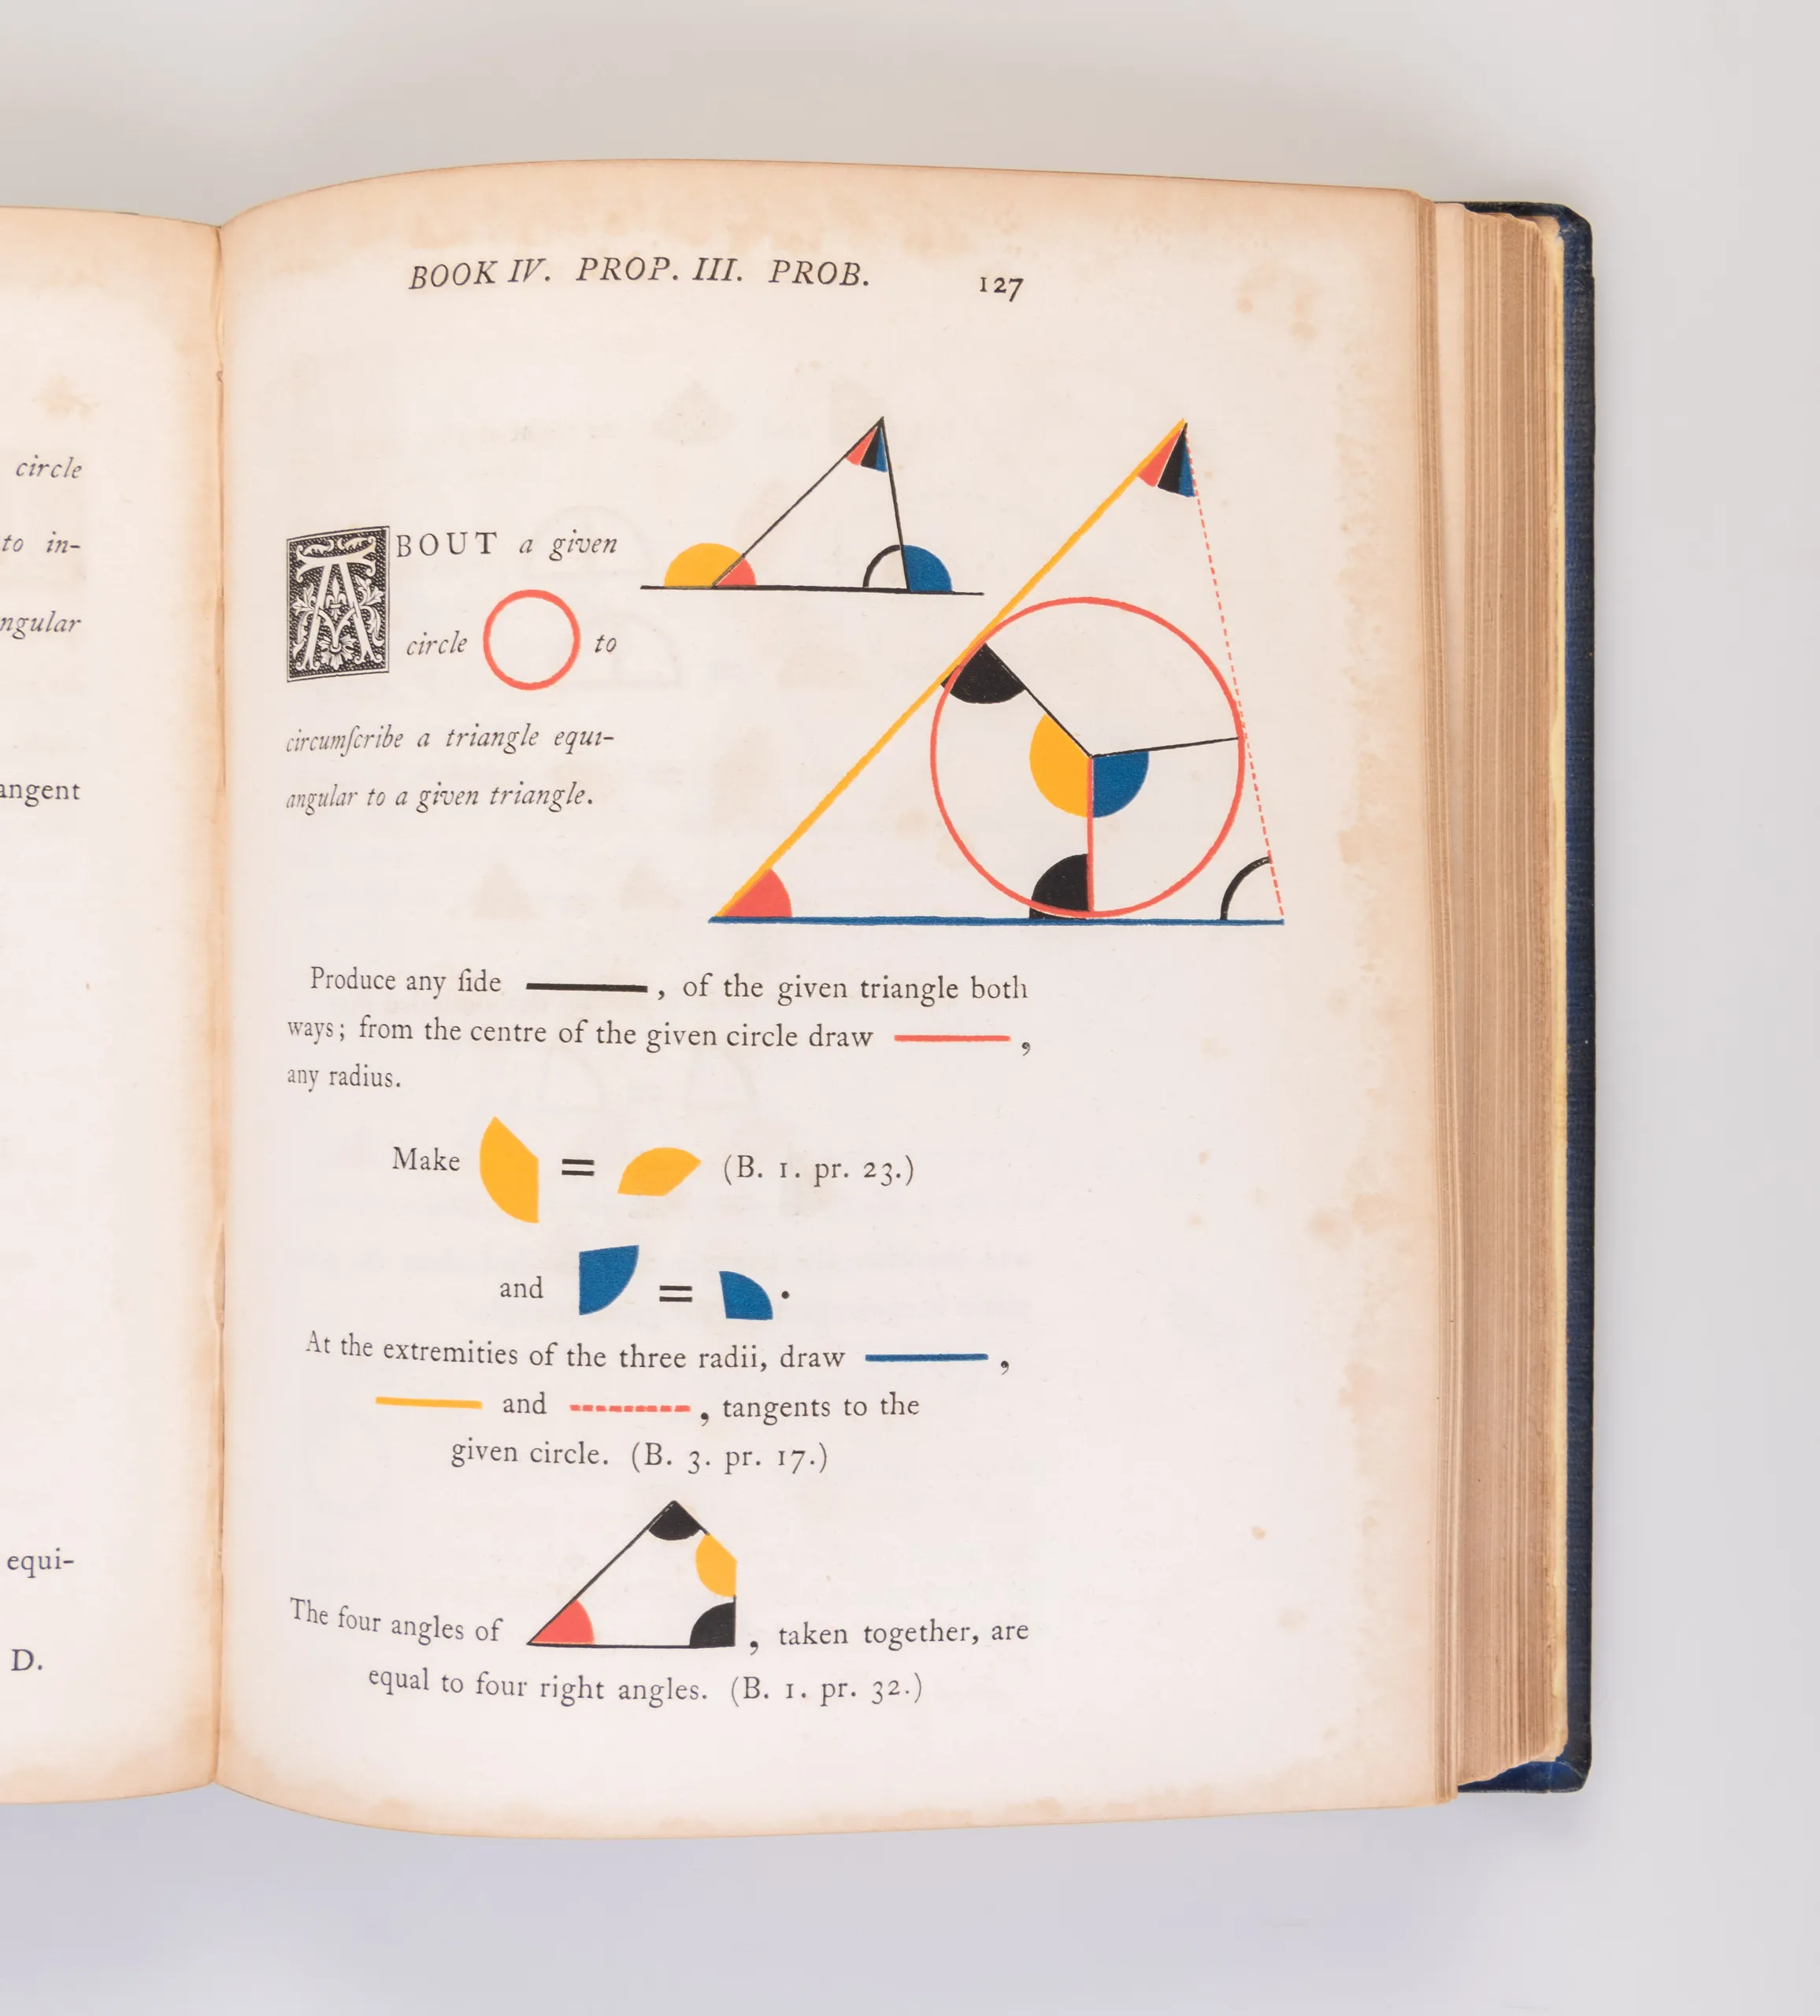 circle
to in-
ngular
angent
equi-
D.
BOOK IV. PROP. III. PROB. 127
ABOUT a given
circle to
circumſcribe a triangle equi-
angular to a given triangle.
Produce any ſide , of the given triangle both
ways; from the centre of the given circle draw ,
any radius.
Make = (B. 1. pr. 23.)
and = .
At the extremities of the three radii, draw ,
and , tangents to the
given circle. (B. 3. pr. 17.)
The four angles of , taken together, are
equal to four right angles. (B. 1. pr. 32.)